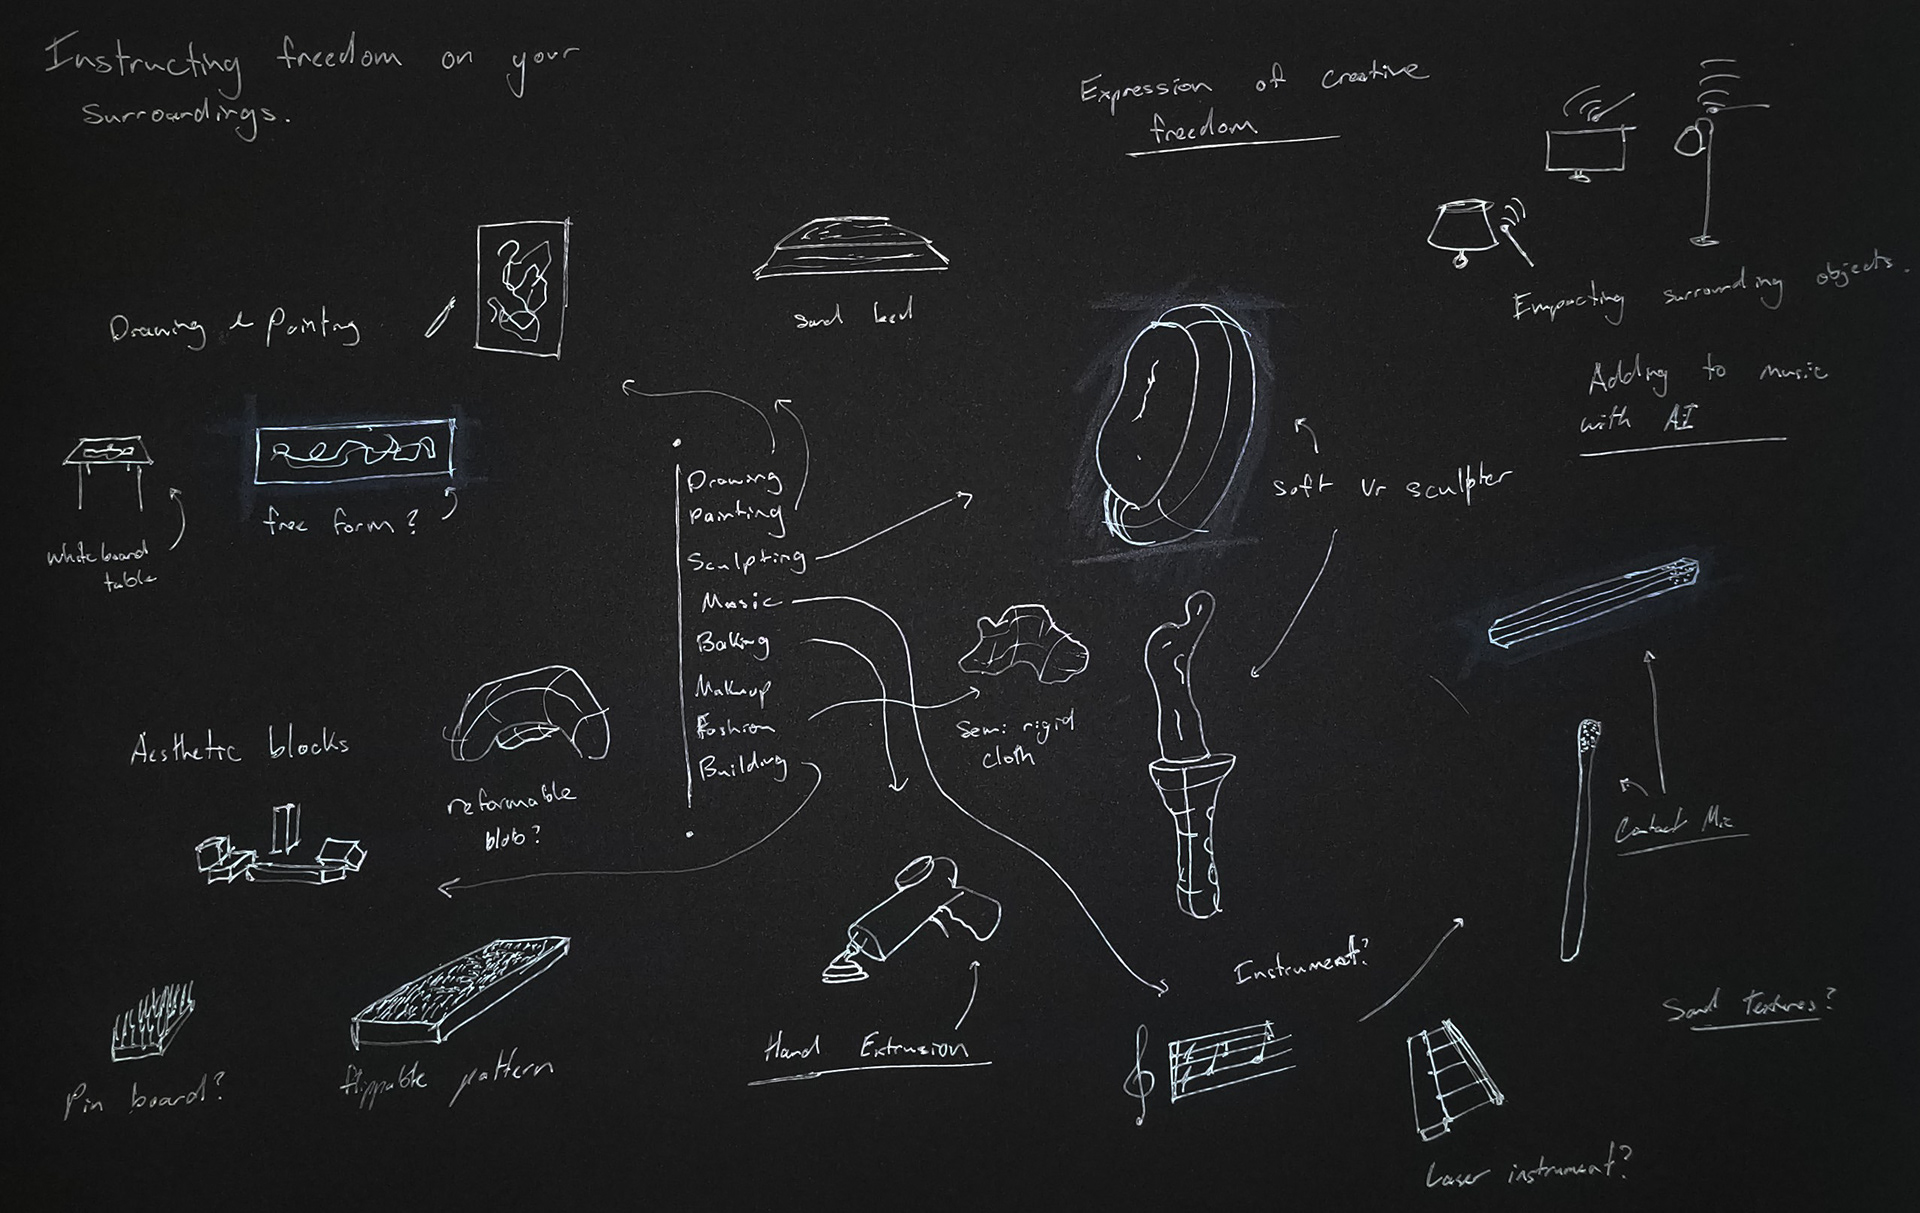 Instructing freedom on your
surroardings.
Expression of creative
freedom
Empacting surrounding objects.
Adding to music
with AI
Drawing & Painting
sand bed
free form?
white board
table
Drawing
Painting
Sculpting
Music
Baking
Makeup
Fashion
Building
soft Vr sculpter
Semi rigid
cloth
Aesthetic blocks
reformable
blob?
Contact Mic
Instrument?
Hand Extrusion
Pin board?
flippable pattern
Sand textures?
Laser instrument?